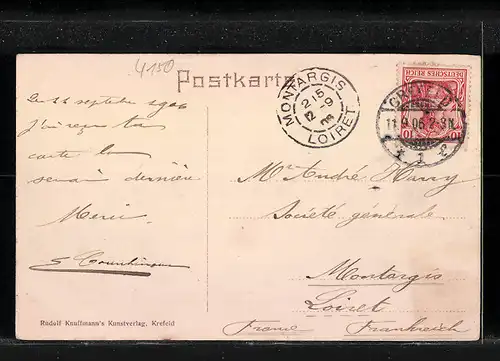 4150
Postkarte
MONTARGIS
215
12 -9
06
LOIRET
DEUTSCHES REICH
10
11.9.06.2-3N.
* 1 f
Le 11 septembre 1906
J'ai reçu ta
carte la
semaine dernière
Merci
Mr André Harry
Société générale
Montargis
Loiret
France Frankreich
Rudolf Knuffmann's Kunstverlag, Krefeld